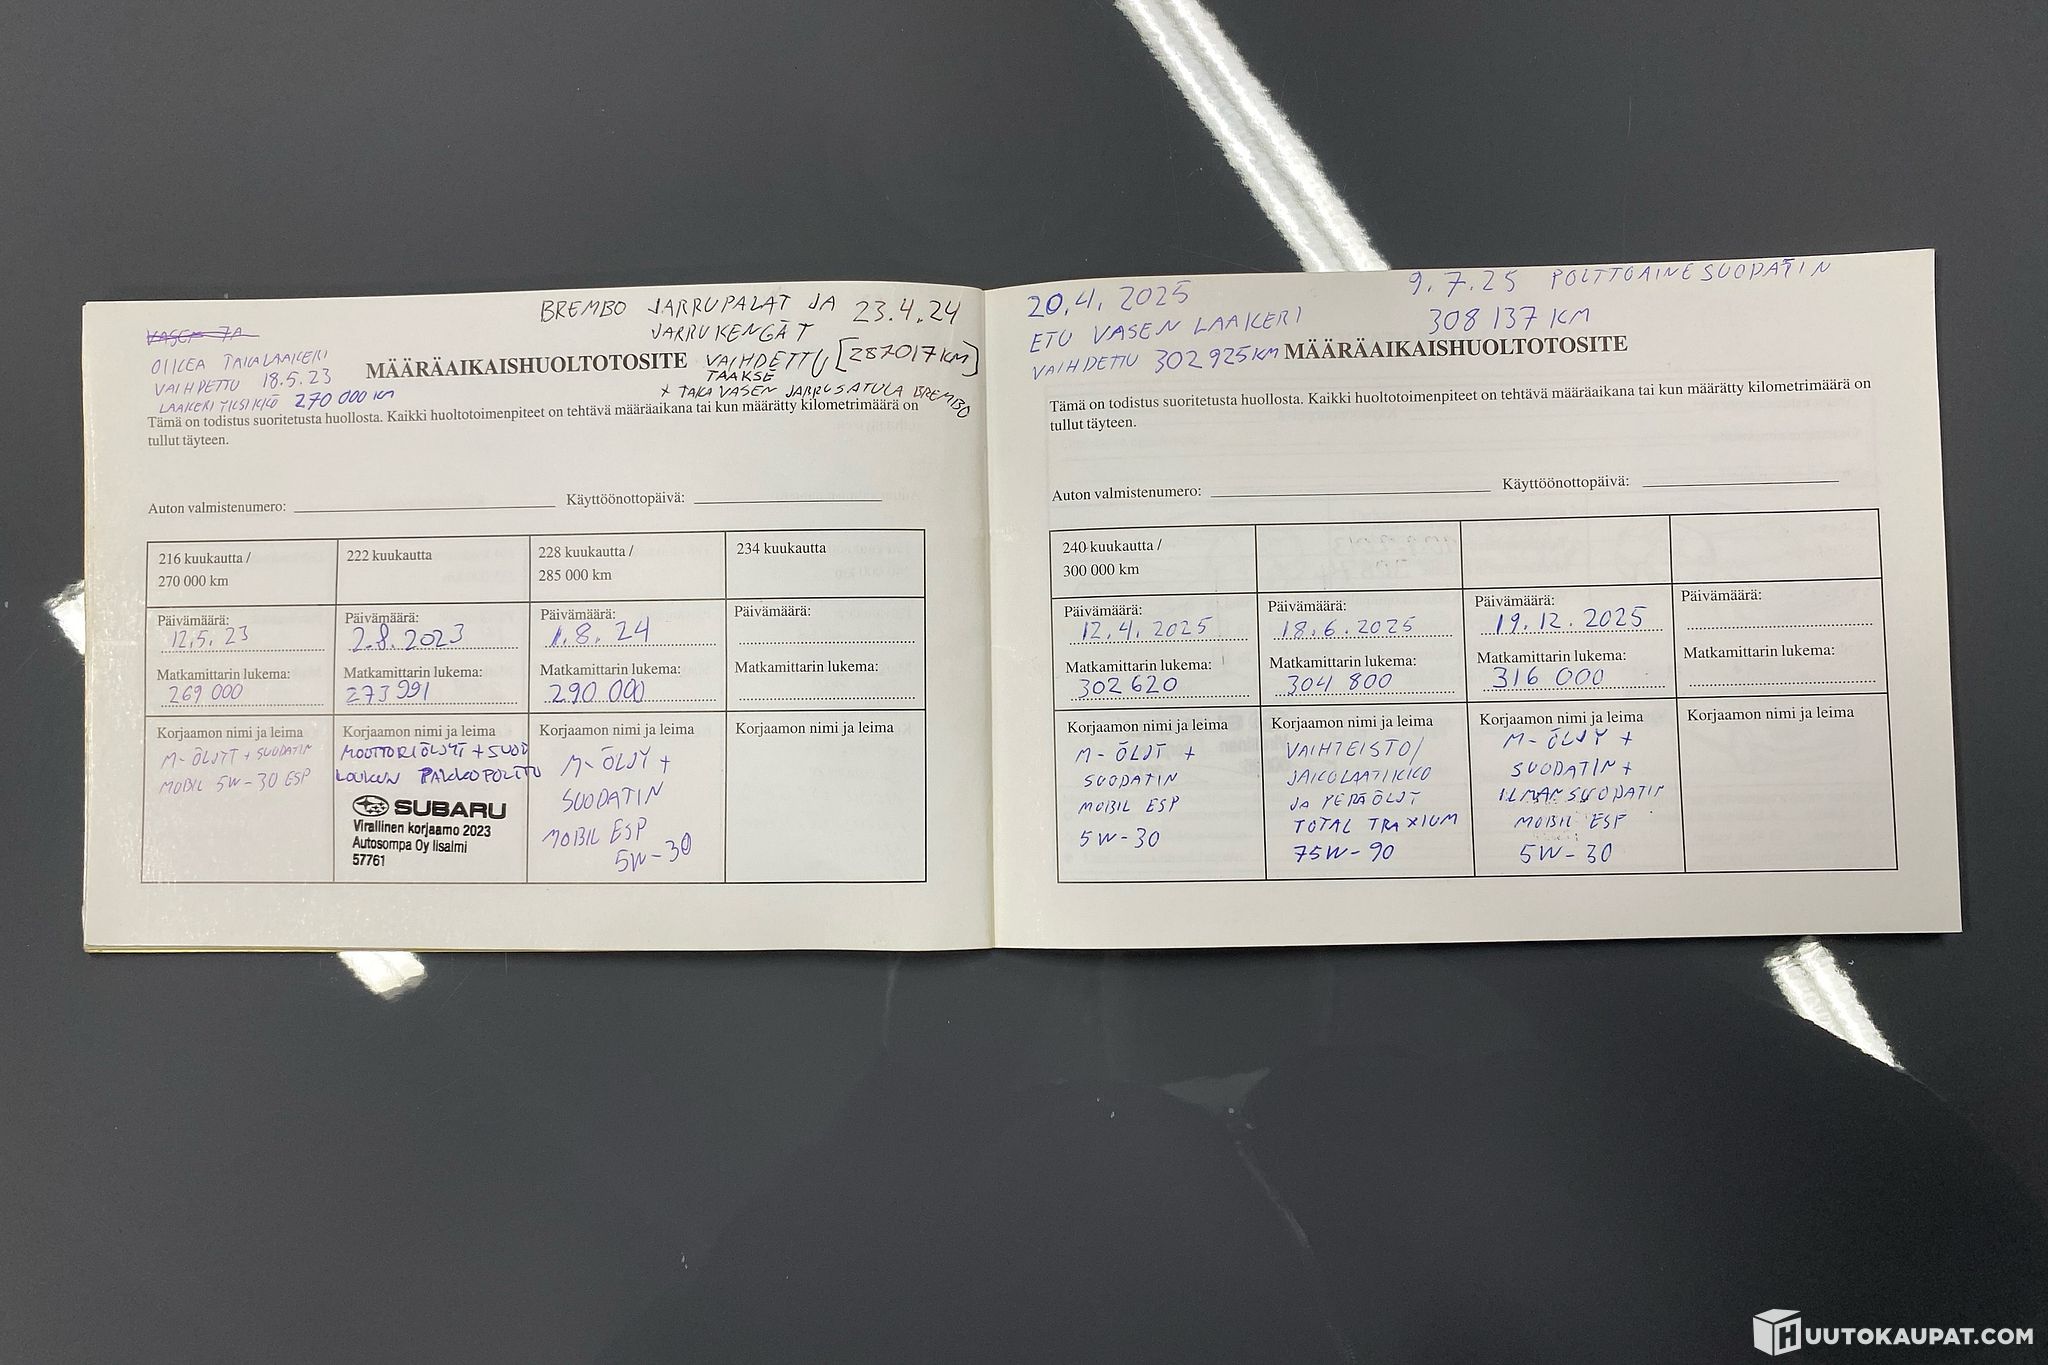 BREMBO JARRUPALAT JA 23.4.24
JARRUKENGÄT
VAIHDETTU [287017 KM]
TAAKSE
+ TAKA VASEN JARRUSATULA BREMBO
OIKEA TAKALAAKERI
VAIHDETTU 18.5.23
LAAKERIYKSIKKÖ 270 000 KM
MÄÄRÄAIKAISHUOLTOTOSITE
Tämä on todistus suoritetusta huollosta. Kaikki huoltotoimenpiteet on tehtävä määräaikana tai kun määrätty kilometrimäärä on
tullut täyteen.
Auton valmistenumero: Käyttöönottopäivä:
216 kuukautta /
270 000 km
Päivämäärä:
12.5.23
Matkamittarin lukema:
269 000
Korjaamon nimi ja leima
M-ÖLJYT + SUODATIN
MOBIL 5W-30 ESP
222 kuukautta
Päivämäärä:
2.8.2023
Matkamittarin lukema:
273 991
Korjaamon nimi ja leima
MOOTTORIÖLJYT + SUOD
PAKKOPOLTTO
SUBARU
Virallinen korjaamo 2023
Autosompa Oy Iisalmi
57761
228 kuukautta /
285 000 km
Päivämäärä:
1.8.24
Matkamittarin lukema:
290 000
Korjaamon nimi ja leima
M-ÖLJY +
SUODATIN
MOBIL ESP
5W-30
234 kuukautta
Päivämäärä:
Matkamittarin lukema:
Korjaamon nimi ja leima
20.4.2025
ETU VASEN LAAKERI
VAIHDETTU 302 925 KM
9.7.25 POLTTOAINESUODATIN
308 137 KM
MÄÄRÄAIKAISHUOLTOTOSITE
Tämä on todistus suoritetusta huollosta. Kaikki huoltotoimenpiteet on tehtävä määräaikana tai kun määrätty kilometrimäärä on
tullut täyteen.
Auton valmistenumero: Käyttöönottopäivä:
240 kuukautta /
300 000 km
Päivämäärä:
12.4.2025
Matkamittarin lukema:
302 620
Korjaamon nimi ja leima
M-ÖLJT +
SUODATIN
MOBIL ESP
5W-30
Päivämäärä:
18.6.2025
Matkamittarin lukema:
304 800
Korjaamon nimi ja leima
VAIHTEISTO/
JAKOLAATIKKO
JA PERÄÖLJT
TOTAL TRAXIUM
75W-90
Päivämäärä:
19.12.2025
Matkamittarin lukema:
316 000
Korjaamon nimi ja leima
M-ÖLJY +
SUODATIN +
ILMANSUODATIN
MOBIL ESP
5W-30
Päivämäärä:
Matkamittarin lukema:
Korjaamon nimi ja leima
HUUTOKAUPAT.COM